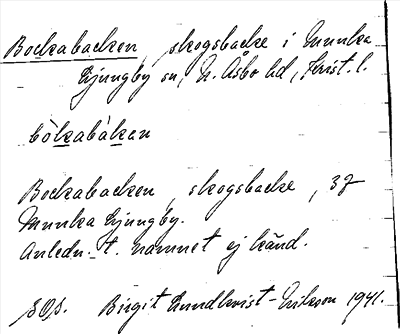 Bockabacken, skogsbacke i Munka
Ljungby sn, N. Åsbo hd, Krist. l.
bòkabàkan
Bockabacken, skogsbacke, 37
Munka Ljungby.
Anledn. t. namnet ej känd.
SOp. Birgit Lundkvist-Erikson 1941.